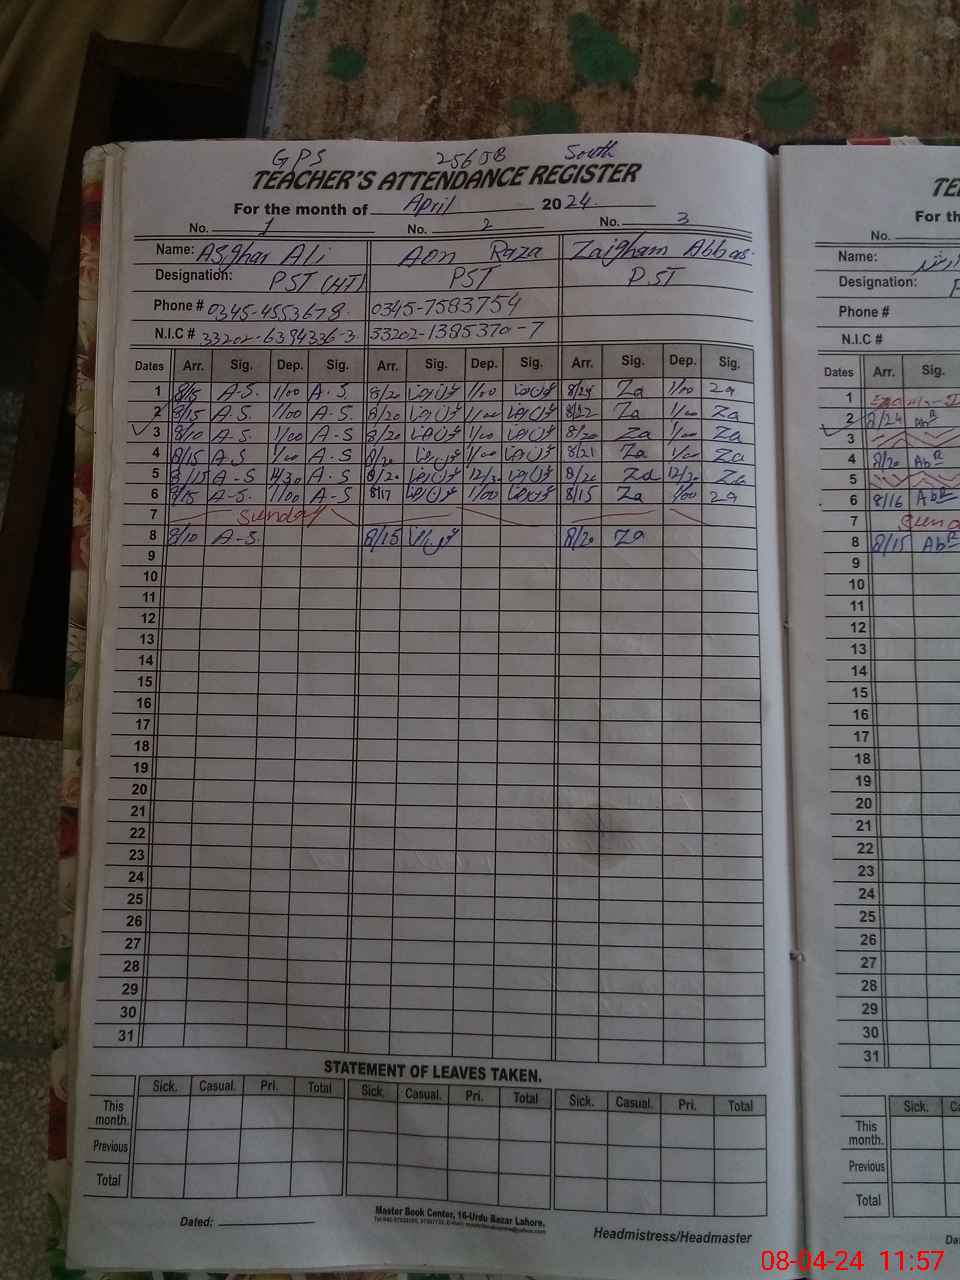 GPS 256 JB South
TEACHER'S ATTENDANCE REGISTER
For the month of April 2024
No. 1 No. 2 No. 3
Name: Asghar Ali Aon Raza Zaigham Abbas.
Designation: PST (HT) PST PST
Phone # 0345-4553678 0345-7583754
N.I.C # 33202-6394336-3 33202-1385370-7
Dates Arr. Sig. Dep. Sig. Arr. Sig. Dep. Sig. Arr. Sig. Dep. Sig.
1 8/15 A-S. 1/00 A-S. 8/20 1/00 8/24 Za 1/00 Za
2 8/15 A-S. 1/00 A-S. 8/20 1/00 8/22 Za 1/00 Za
3 8/10 A-S 1/00 A-S 8/20 1/00 8/20 Za 1/00 Za
4 8/15 A-S 1/00 A-S 8/20 1/00 8/21 Za 1/00 Za
5 8/15 A-S A-S 8/20 12/30 8/20 Za 12/30 Za
6 8/15 A-S. 1/00 A-S 8/17 1/00 8/15 Za 1/00 Za
7 Sunday
8 8/10 A-S. 8/15 8/20 Za
9
10
11
12
13
14
15
16
17
18
19
20
21
22
23
24
25
26
27
28
29
30
31
STATEMENT OF LEAVES TAKEN.
Sick. Casual. Pri. Total Sick. Casual. Pri. Total Sick. Casual. Pri. Total
This month.
Previous
Total
Dated:
Master Book Center, 16-Urdu Bazar Lahore.
Headmistress/Headmaster
For th
No.
Name:
Designation:
Phone #
N.I.C #
Dates Arr. Sig.
1
2 8/24 Ab
3
4 8/20 Ab
5
6 8/16 Ab
7
8 8/15 Ab
9
10
11
12
13
14
15
16
17
18
19
20
21
22
23
24
25
26
27
28
29
30
31
Sick.
This month.
Previous
Total
08-04-24 11:57